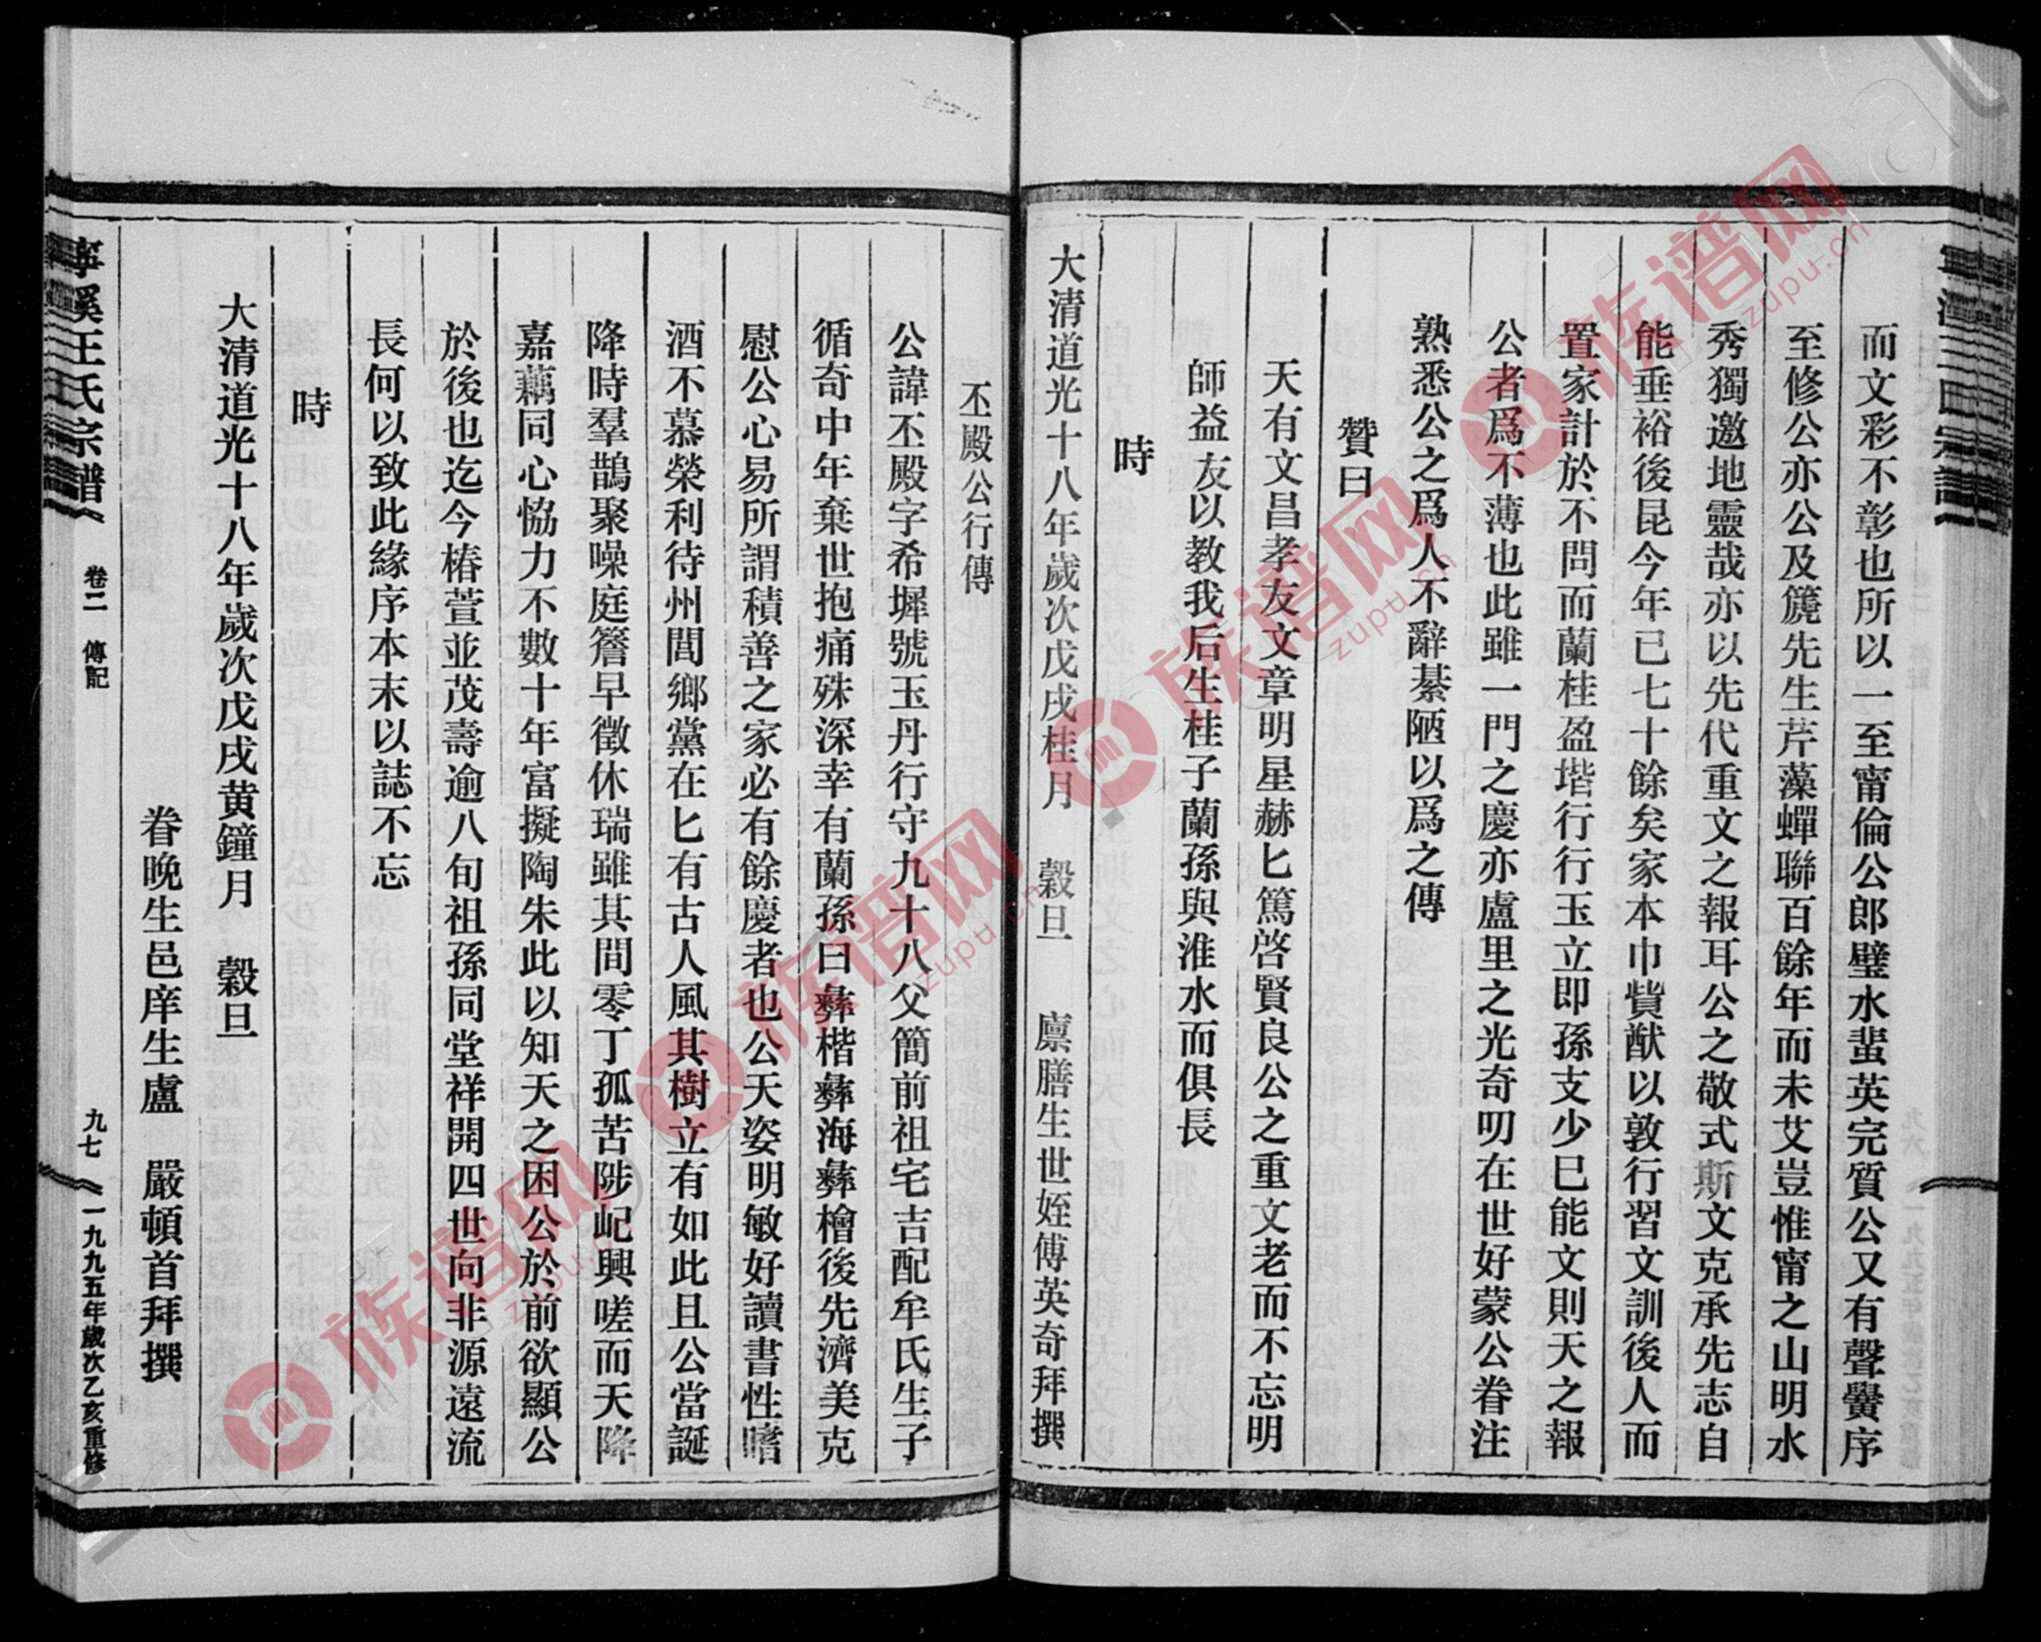 而文彩不彰也所以一至甯倫公郎璧水蜚英完質公又有聲黌序
至修公亦公及篪先生芹藻蟬聯百餘年而未艾豈惟甯之山明水
秀獨邀地靈哉亦以先代重文之報耳公之敬式斯文克承先志自
能垂裕後昆今年已七十餘矣家本巾貲猷以敦行習文訓後人而
置家計於不問而蘭桂盈堦行行玉立即孫支少已能文則天之報
公者爲不薄也此雖一門之慶亦盧里之光奇叨在世好蒙公眷注
熟悉公之爲人不辭綦陋以爲之傳
贊曰
天有文昌孝友文章明星赫匕篤啓賢良公之重文老而不忘明
師益友以教我后生桂子蘭孫與淮水而俱長
時
大清道光十八年歲次戊戌桂月 穀旦 廩膳生世姪傅英奇拜撰
丕殿公行傳
公諱丕殿字希墀號玉丹行守九十八父簡前祖宅吉配牟氏生子
循奇中年棄世抱痛殊深幸有蘭孫曰彝楷彝海彝檜後先濟美克
慰公心易所謂積善之家必有餘慶者也公天姿明敏好讀書性嗜
酒不慕榮利待州閭鄉黨在匕有古人風其樹立有如此且公當誕
降時羣鵲聚噪庭簷早徵休瑞雖其間零丁孤苦陟屺興嗟而天降
嘉耦同心恊力不數十年富擬陶朱此以知天之困公於前欲顯公
於後也迄今椿萱並茂壽逾八旬祖孫同堂祥開四世向非源遠流
長何以致此緣序本末以誌不忘
時
大清道光十八年歲次戊戌黄鐘月 穀旦
眷晚生邑庠生盧 嚴頓首拜撰
寧溪王氏宗譜 卷二 傳記 九七 一九九五年歲次乙亥重修
族谱网
zupu.cn
族谱网
zupu.cn
族谱网
zupu.cn
族谱网
zupu.cn